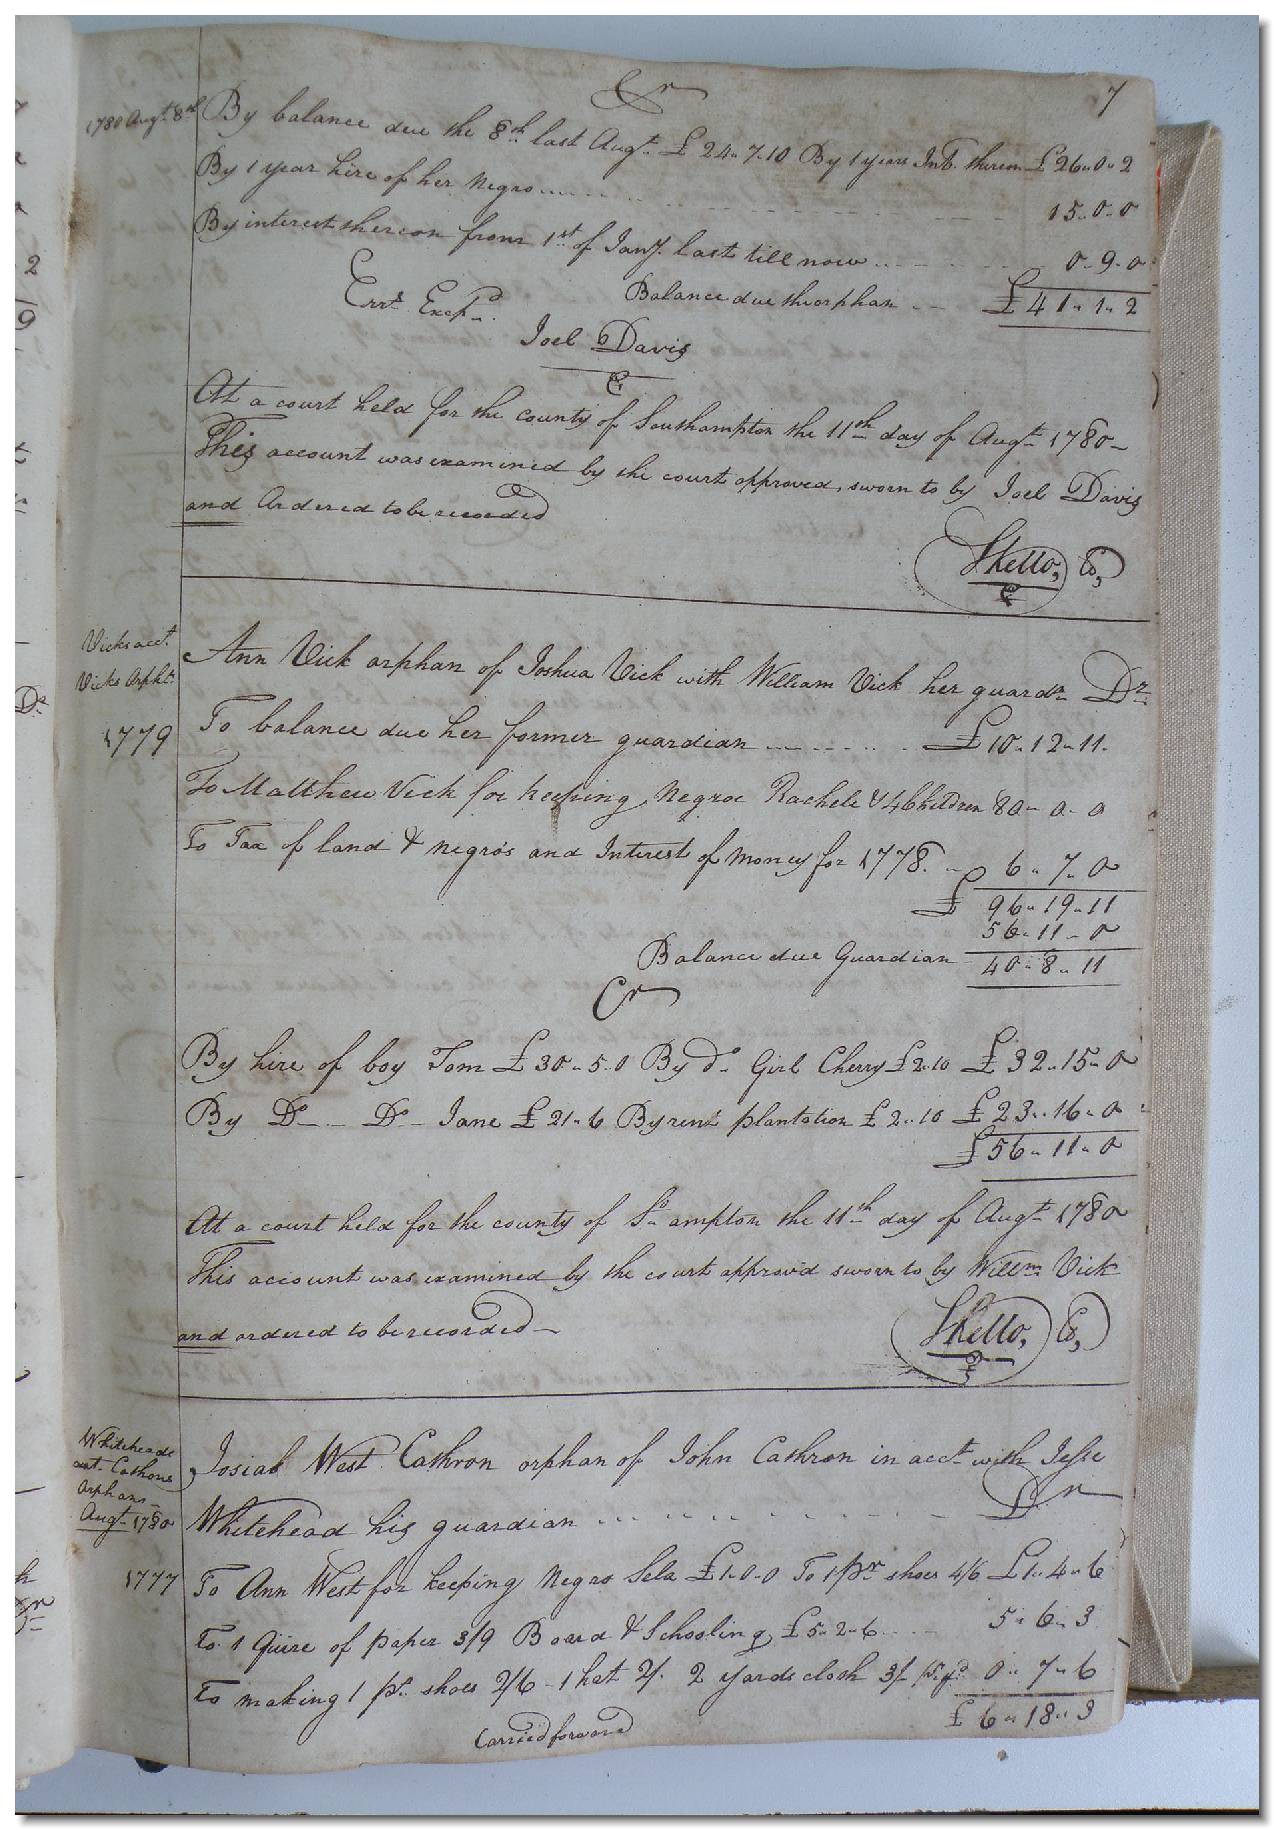 7
Cr
1780 Augt. 8th By balance due the 8th last Augt. £ 24.. 7.10 By 1 years Intt. thereon £ 26.. 0.. 2
By 1 year hire of her negro 15.. 0.. 0
By interest thereon from 1st of Jany. last till now 0.. 9.. 0
Balance due the orphan £ 41.. 1.. 2
Errs. Excpd.
Joel Davis
At a court held for the county of Southampton the 11th day of Augt. 1780
This account was examined by the court approved, sworn to by Joel Davis
and Ordered to be recorded
Vicks acct.
Vicks Orpht.
Ann Vick orphan of Joshua Vick with William Vick her guardn Dr
1779 To balance due her former guardian £ 10.. 12.. 11.
To Matthew Vick for keeping Negroe Rachele & 4 Children 80.. 0.. 0
To Tax of land & negro's and Interest of money for 1778. 6.. 7.. 0
£ 96.. 19.. 11
56.. 11.. 0
Balance due Guardian 40.. 8.. 11
Cr
By hire of boy Tom £ 30.. 5.. 0 By do. Girl Cherry £ 2.. 10 £ 32.. 15.. 0
By Do. Do. Jane £ 21.. 6 By rent plantation £ 2.. 10 £ 23.. 16.. 0
£ 56.. 11.. 0
At a court held for the county of So. ampton the 11th day of Augt. 1780
This account was examined by the court approv'd sworn to by Willm. Vick
and ordered to be recorded
Whiteheads
acct. Cathons
Orphans
Augt. 1780
Josiah West Cathron orphan of John Cathron in acct. with Jesse
Whitehead his guardian Dr
1777 To Ann West for keeping Negro Sela £ 1.. 0.. 0 To 1 pr shoes 4/6 £ 1.. 4.. 6
To 1 Quire of paper 3/9 Board & Schooling £ 5.. 2.. 6 5.. 6.. 3
To making 1 pr. shoes 2/6 1 hat 2/. 2 yards cloth 3/ 0.. 7.. 6
£ 6.. 18.. 3
Carried forward